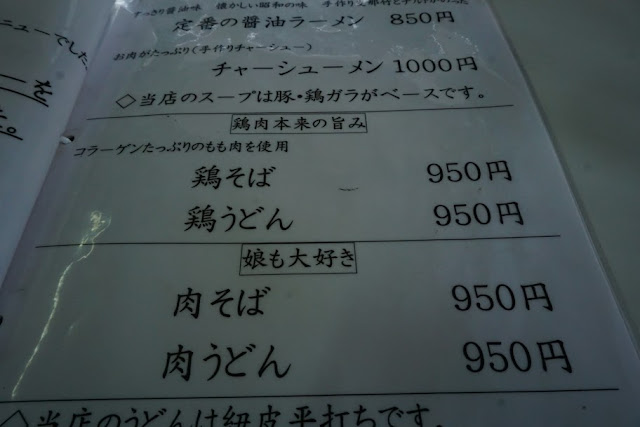 すっきり醤油味 懐かしい昭和の味 手作り
定番の醤油ラーメン 850円
お肉がたっぷり(手作りチャーシュー)
チャーシューメン 1000円
◇当店のスープは豚・鶏ガラがベースです。
ニューでした
鶏肉本来の旨み
コラーゲンたっぷりのもも肉を使用
鶏そば 950円
鶏うどん 950円
娘も大好き
肉そば 950円
肉うどん 950円
◇当店のうどんは紐皮平打ちです。